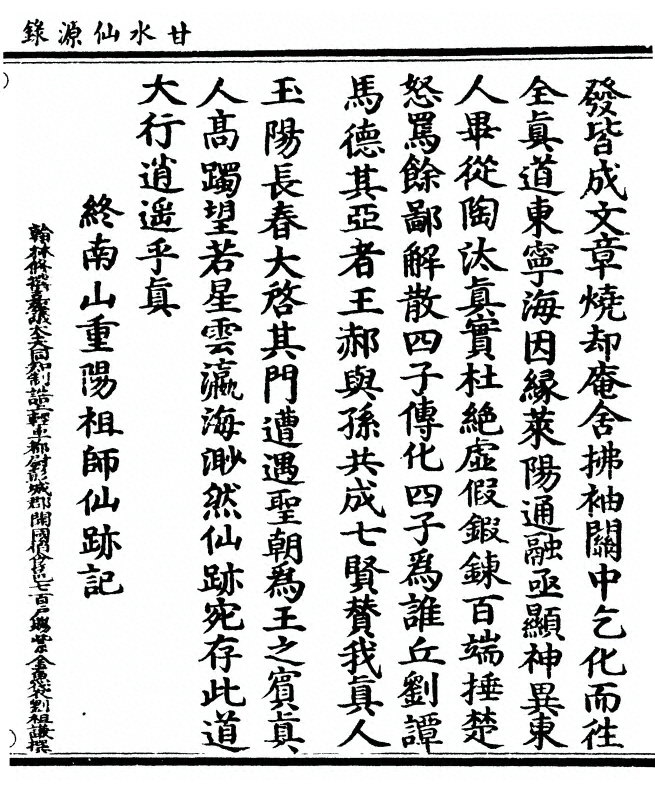 甘水仙源錄
發皆成文章燒却庵舍拂袖關中乞化而徃
全眞道東寧海因緣萊陽通融亟顯神異東
人畢從陶汰眞實杜絶虛假鍜鍊百端捶楚
怒罵餘鄙解散四子傳化四子爲誰丘劉譚
馬德其亞者王郝與孫共成七賢贊我眞人
玉陽長春大啓其門遭遇聖朝爲王之賓眞
人高躅望若星雲瀛海渺然仙跡宛存此道
大行逍遥乎眞
終南山重陽祖師仙跡記
翰林修撰嘉議大夫同知制誥上輕車都尉彭城郡開國伯食邑七百戸賜紫金魚袋劉祖謙撰